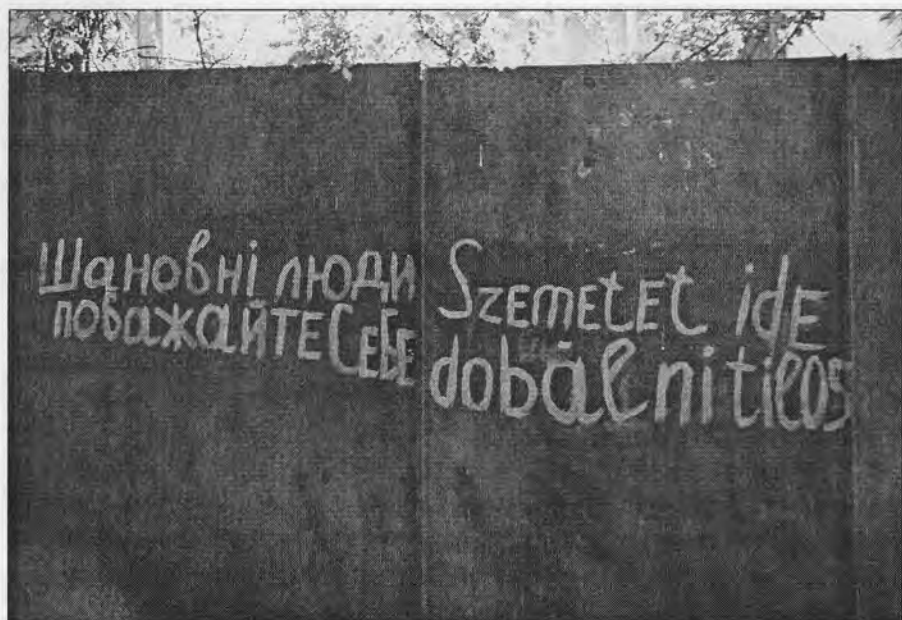 Шановні люди
поважайте себе
Szemetet ide
dobálni tilos